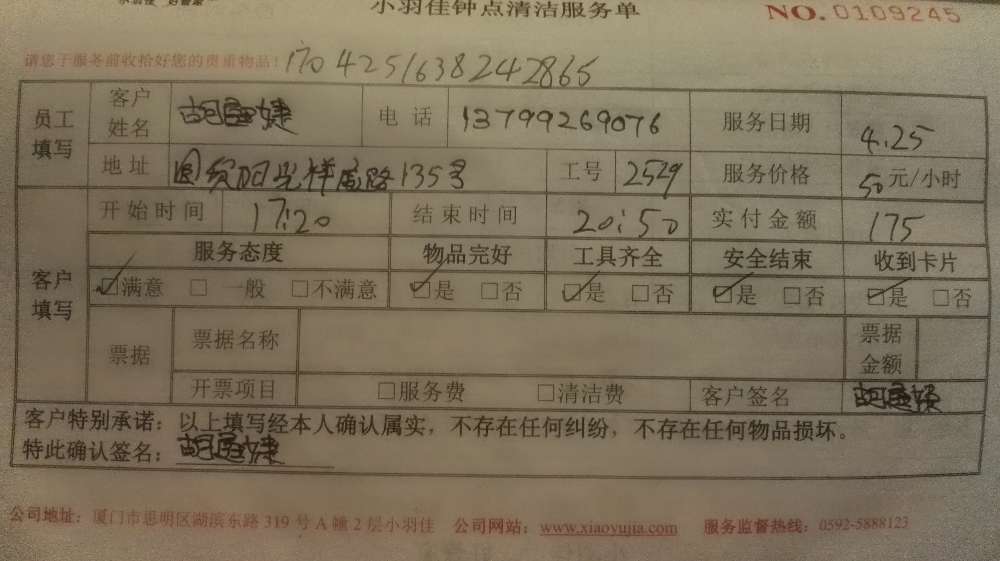 小羽佳钟点清洁服务单
NO.0109245
请您于服务前收拾好您的贵重物品! 1704251638242865
员工填写 客户姓名 电话 13799269076 服务日期 4.25
地址 135号 工号 2529 服务价格 50元/小时
客户填写 开始时间 17:20 结束时间 20:50 实付金额 175
服务态度 物品完好 工具齐全 安全结束 收到卡片
☑满意 □一般 □不满意 ☑是 □否 ☑是 □否 ☑是 □否 ☑是 □否
票据 票据名称 票据金额
开票项目 □服务费 □清洁费 客户签名
客户特别承诺：以上填写经本人确认属实，不存在任何纠纷，不存在任何物品损坏。
特此确认签名：
公司地址：厦门市思明区湖滨东路319号A幢2层小羽佳 公司网站：www.xiaoyujia.com 服务监督热线：0592-5888123